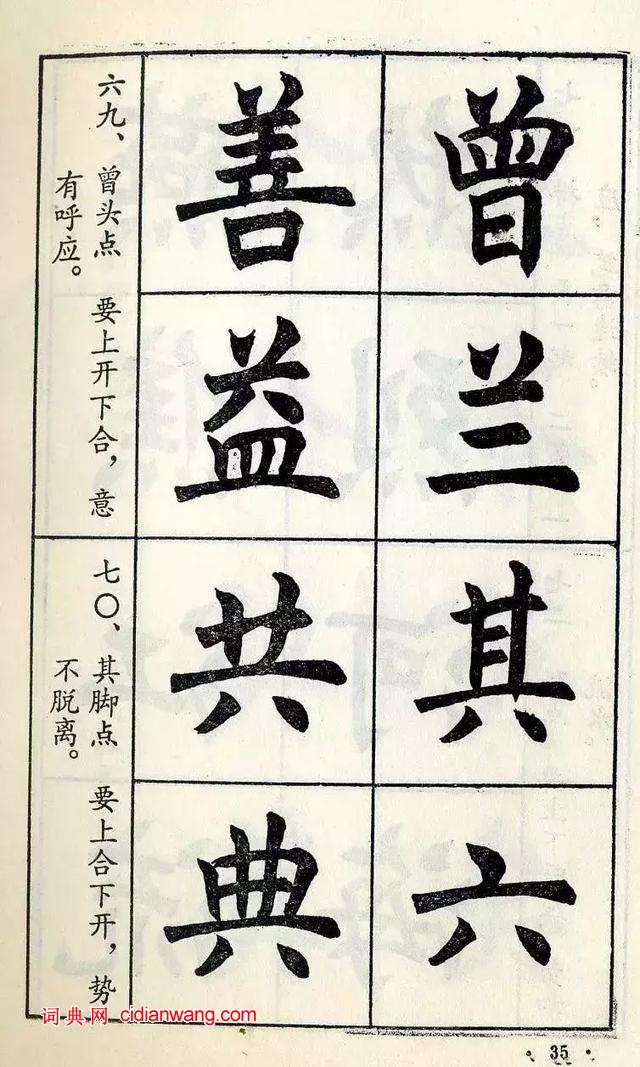 曾
兰
其
六
善
益
共
典
六九、曾头点 要上开下合，意
有呼应。
七〇、其脚点 要上合下开，势
不脱离。
词典网 cidianwang.com
• 35 •